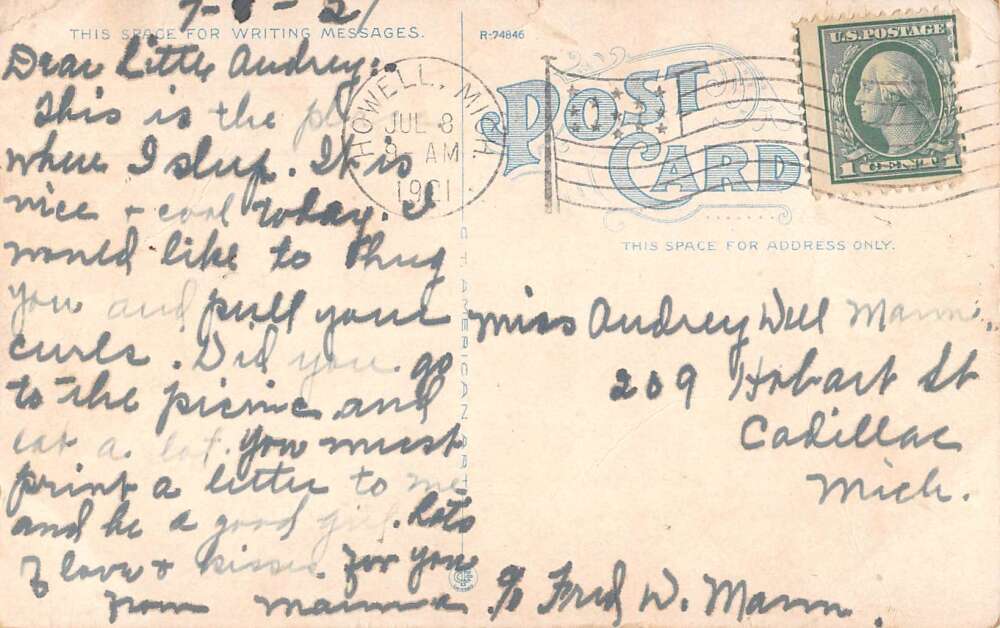 7-8-21
THIS SPACE FOR WRITING MESSAGES.
Dear Little Audrey:-
This is the place
where I sleep. It is
nice & cool today. I
would like to hug
you and pull your
curls. Did you go
to the picnic and
eat a lot. You must
print a letter to me
and be a good girl. Lots
of love & kisses for you
from mamma
R-74846
HOWELL, MICH.
JUL 8
9 - AM
1921
POST CARD
U.S. POSTAGE
1 CENT 1
THIS SPACE FOR ADDRESS ONLY.
Miss Audrey Dell Mann.
209 Hobart St
Cadillac
Mich.
c/o Fred W. Mann.